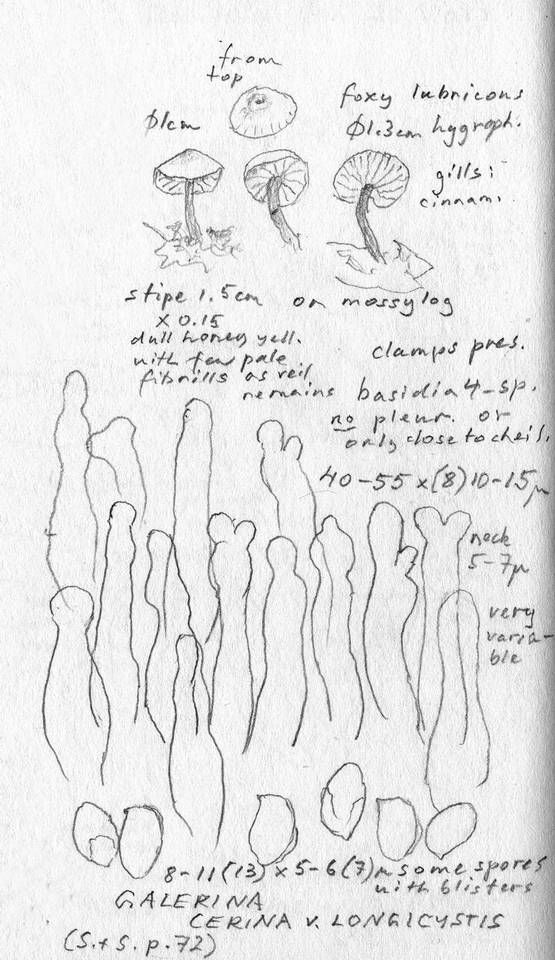 from
top
Ø1cm
foxy lubricous
Ø1.3cm hygroph.
gills:
cinnam.
stipe 1.5cm
x 0.15
dull honey yell.
with few pale
fibrills as veil
remains
on mossy log
clamps pres.
basidia 4-sp.
no pleur. or
only close to cheil.
40-55 x (8) 10-15µ
neck
5-7µ
very
varia-
ble
8-11(13) x 5-6(7)µ some spores
with blisters
GALERINA
CERINA V. LONGICYSTIS
(S.+S. p.72)